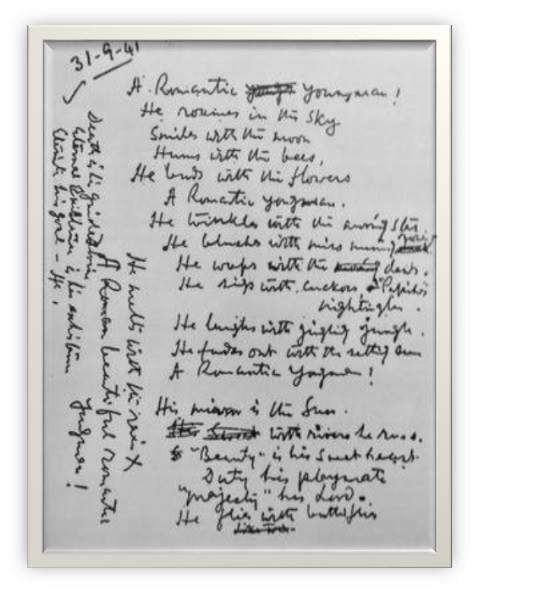 31-9-41
A Romantic Youngman!
He roams in the Sky
Smiles with the moon
Hums with the bees,
He bends with the flowers
A Romantic youngman.
He twinkles with the stars
He blushes with
He weeps with the dews.
He sings with cuckoos & Papihas
nightingles.
He laughs with jungle.
He fades out with the setting sun
A Romantic Youngman!
His mirror is the Sun.
with rivers he runs.
"Beauty" is his Sweet heart
Duty his playmate
"majesty" his Lord.
He flies with butterflies
He melts with the rain X
A Roman beautiful romantic
Youngman!
Death is his
eternal is his ambition
his goal - He,